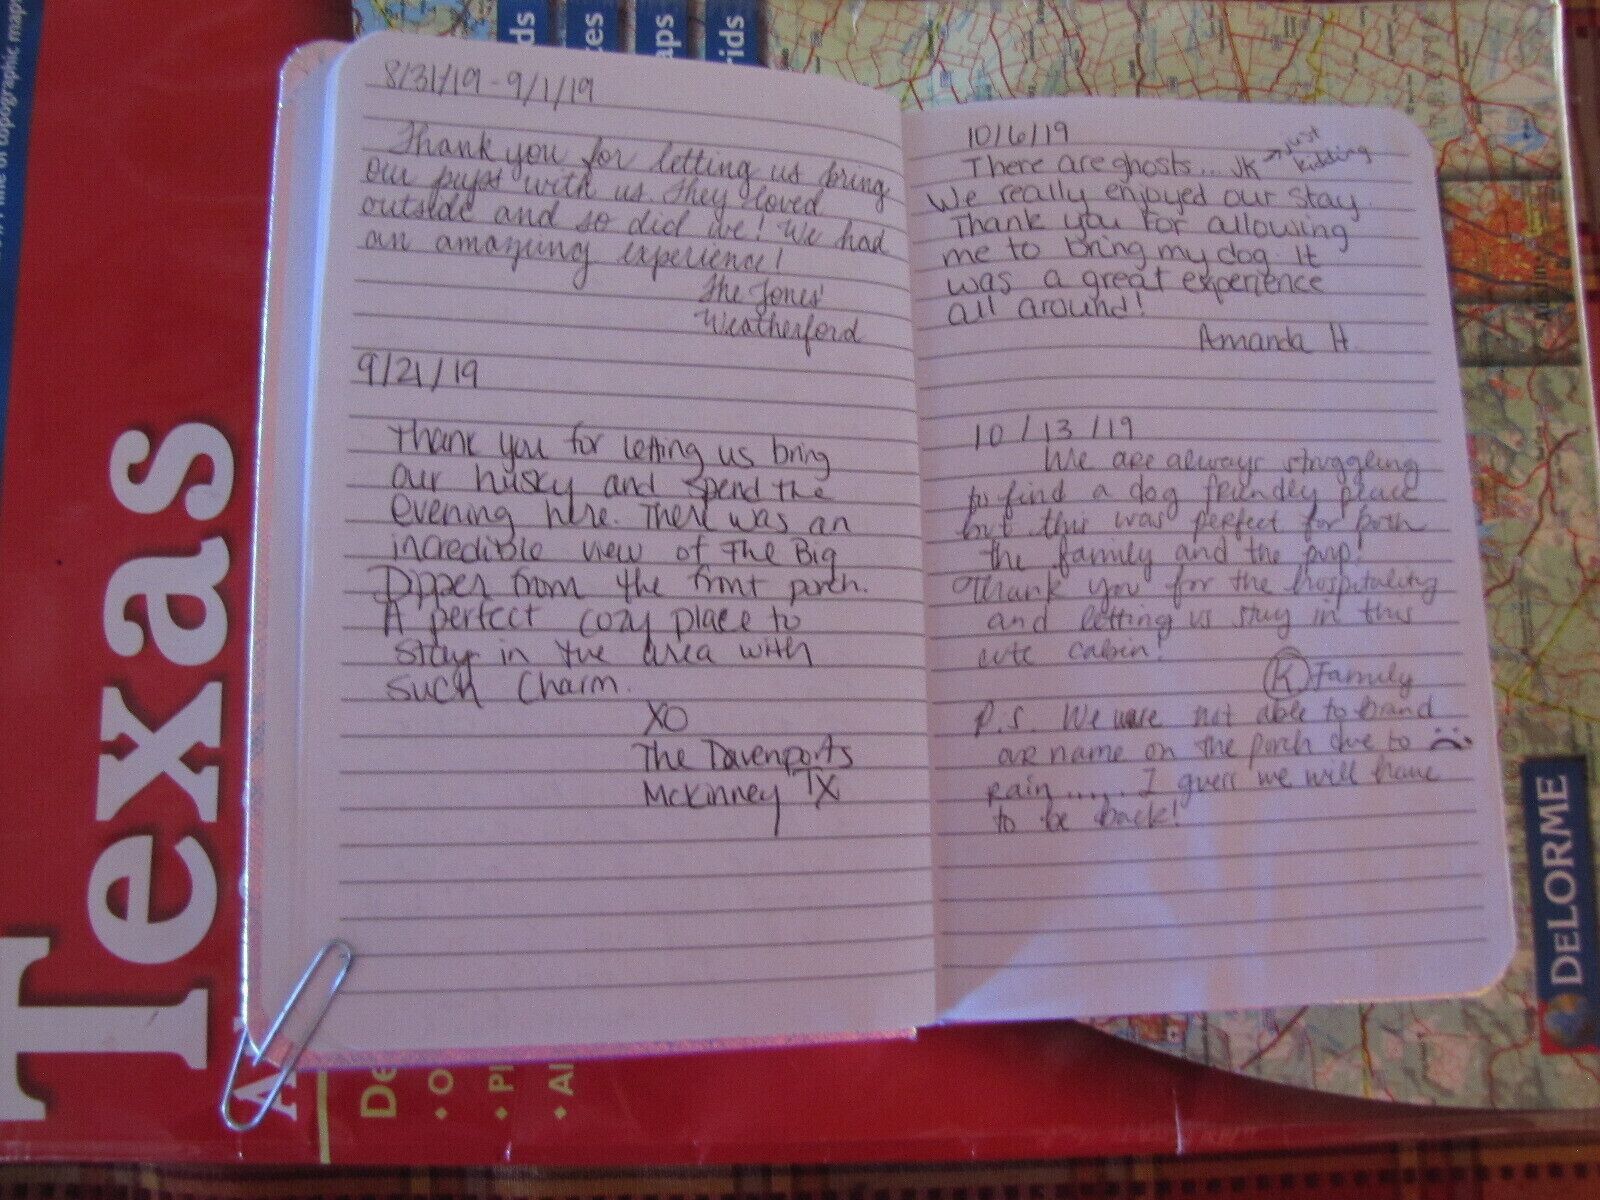 8/31/19 - 9/1/19
Thank you for letting us bring
our pups with us. They loved
outside and so did we! We had
an amazing experience!
The Jones'
Weatherford
9/21/19
Thank you for letting us bring
our husky and spend the
evening here. There was an
incredible view of The Big
Dipper from the front porch.
A perfect cozy place to
stay in the area with
such charm.
XO
The Davenports
McKinney TX
10/6/19
There are ghosts... JK → just kidding
We really enjoyed our stay.
Thank you for allowing
me to bring my dog. It
was a great experience
all around!
Amanda H
10/13/19
We are always struggling
to find a dog friendly place
but this was perfect for both
the family and the pup!
Thank you for the hospitality
and letting us stay in this
cute cabin!
K Family
P.S. We were not able to brand
our name on the porch due to
rain...... I guess we will have
to be back!
Texas
DELORME
ds
xes
aps
rids
of topographic maps
De
• O
• Pl
• Al